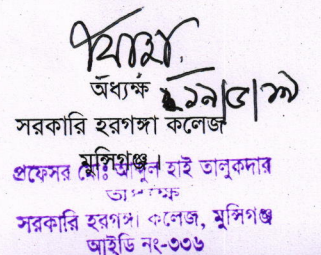 অধ্যক্ষ ১৯/৫/১৯
সরকারি হরগঙ্গা কলেজ
মুন্সিগঞ্জ।
প্রফেসর মোঃ আব্দুল হাই তালুকদার
অধ্যক্ষ
সরকারি হরগঙ্গা কলেজ, মুন্সিগঞ্জ
আইডি নং-৩৩৬